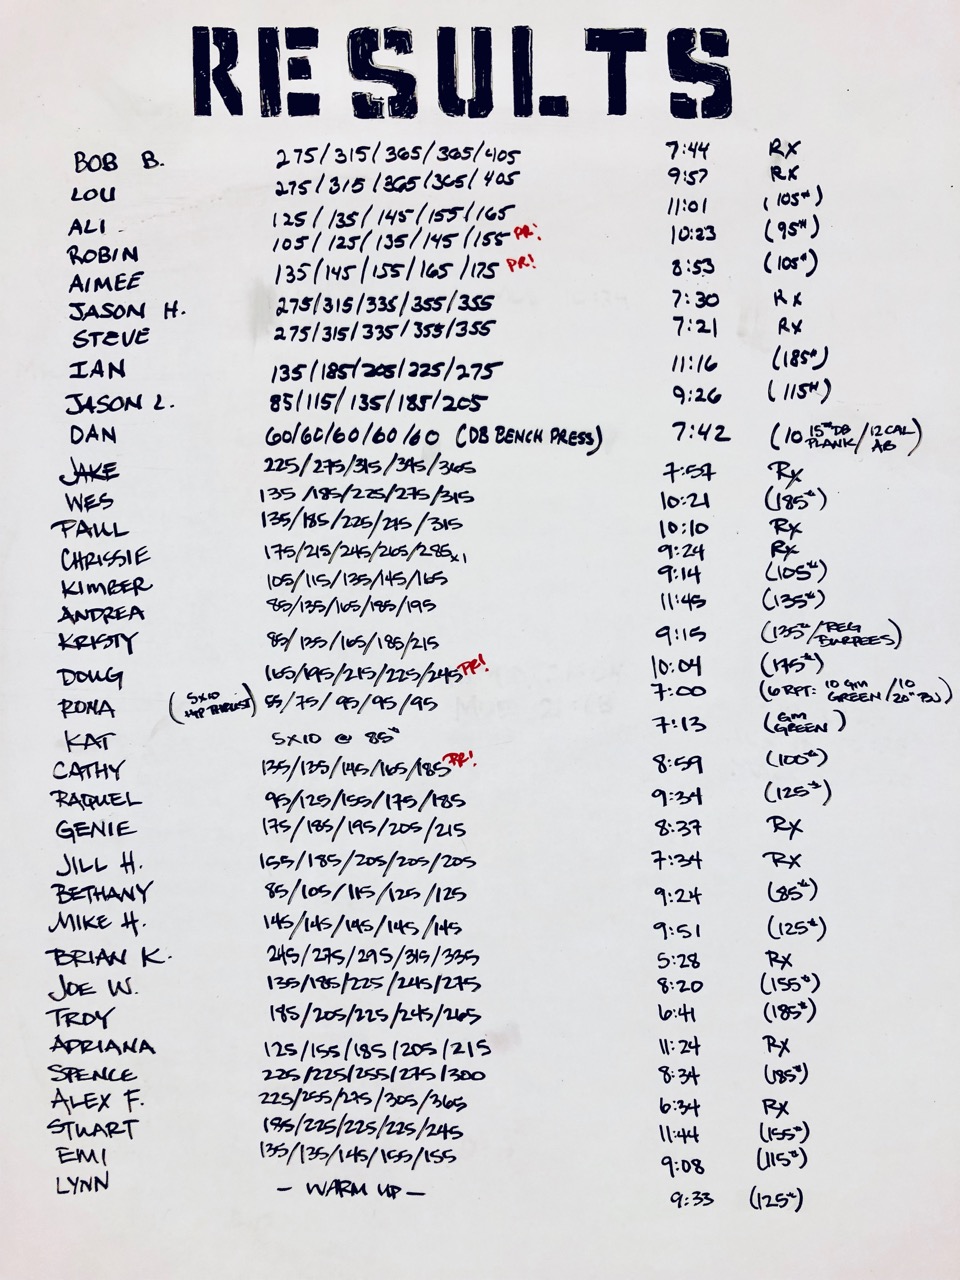 RESULTS
BOB B. 275/315/365/365/405 7:44 RX
LOU 275/315/365/365/405 9:57 RX
ALI 125/135/145/155/165 11:01 (105#)
ROBIN 105/125/135/145/155 PR! 10:23 (95#)
AIMEE 135/145/155/165/175 PR! 8:53 (105#)
JASON H. 275/315/335/355/355 7:30 RX
STEVE 275/315/335/355/355 7:21 RX
IAN 135/185/205/225/275 11:16 (185#)
JASON L. 85/115/135/185/205 9:26 (115#)
DAN 60/60/60/60/60 (DB BENCH PRESS) 7:42 (10 15# DB PLANK/12 CAL AB)
JAKE 225/275/315/345/365 7:57 RX
WES 135/185/225/275/315 10:21 (185#)
PAUL 135/185/225/275/315 10:10 RX
CHRISSIE 175/215/245/265/285x1 9:24 RX
KIMBER 105/115/135/145/165 9:14 (105#)
ANDREA 85/135/165/185/195 11:45 (135#)
KRISTY 85/135/165/185/215 9:15 (135#/REG BURPEES)
DOUG 165/195/215/225/245 PR! 10:04 (175#)
ROMA (5X10 HIP THRUST) 55/75/95/95/95 7:00 (6 RPT: 10 GM GREEN/10 20" BJ)
KAT 5X10 @ 85# 7:13 (GM GREEN)
CATHY 135/135/145/165/185 PR! 8:59 (100#)
RAQUEL 95/125/155/175/185 9:34 (125#)
GENIE 175/185/195/205/215 8:37 RX
JILL H. 155/185/205/205/205 7:34 RX
BETHANY 85/105/115/125/125 9:24 (85#)
MIKE H. 145/145/145/145/145 9:51 (125#)
BRIAN K. 245/275/295/315/335 5:28 RX
JOE W. 135/185/225/245/275 8:20 (155#)
TROY 185/205/225/245/265 6:41 (185#)
ADRIANA 125/155/185/205/215 11:24 RX
SPENCE 225/225/255/275/300 8:34 (185#)
ALEX F. 225/255/275/305/365 6:34 RX
STUART 185/225/225/225/245 11:44 (155#)
EMI 135/135/145/155/155 9:08 (115#)
LYNN - WARM UP - 9:33 (125#)